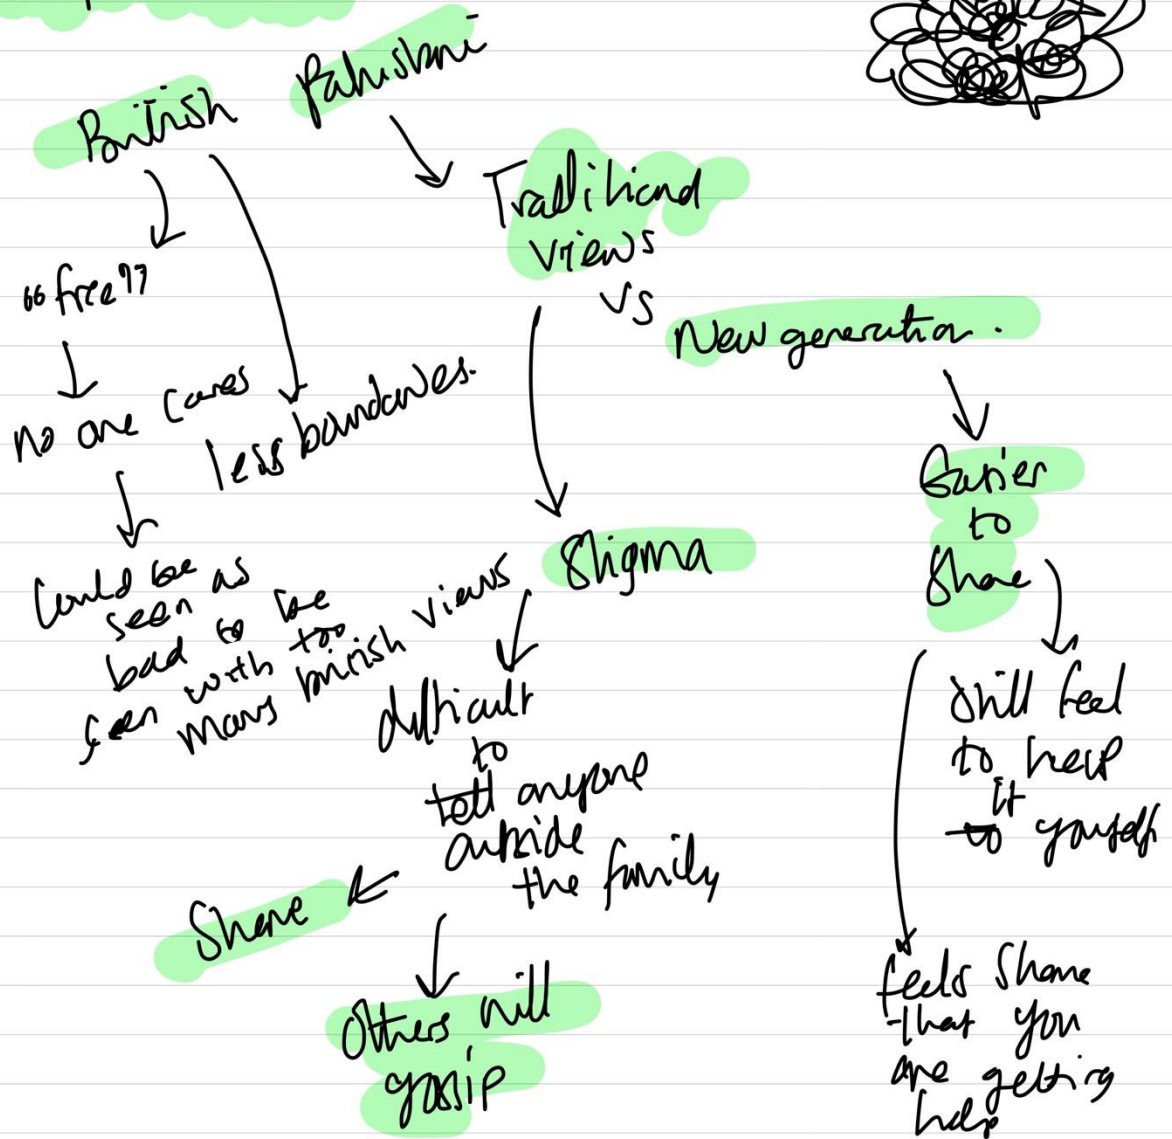 British
Pakistani
"free"
no one cares
less boundaries.
Could be
seen as
bad to be
seen with too
many british views
Traditional
views
vs
New generation.
Stigma
difficult
to
tell anyone
outside
the family
Shame
Others will
gossip
Easier
to
Share
Still feel
to help
it
to yourself
feels Shame
that you
are getting
help